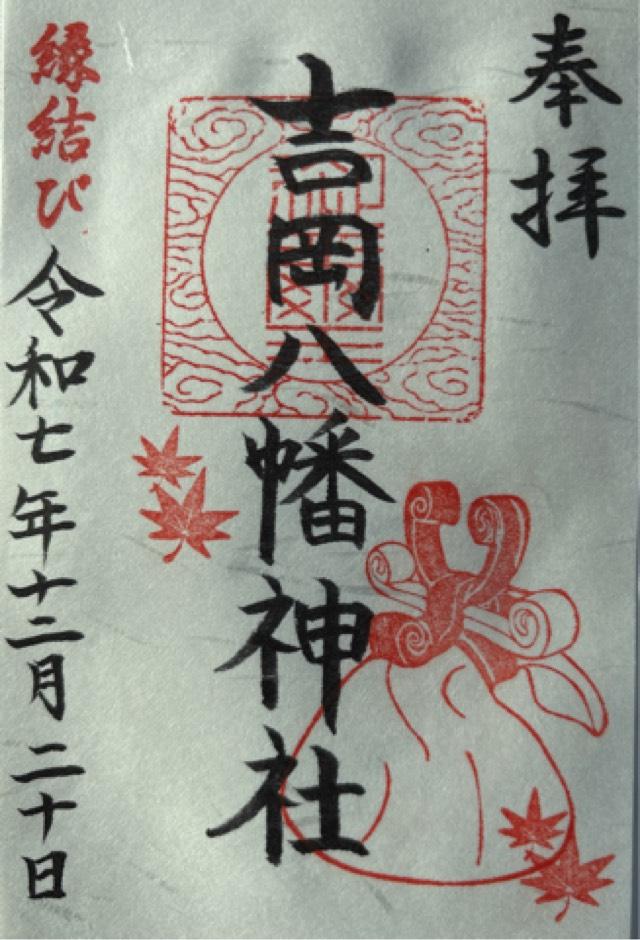 奉拝
吉岡八幡神社
縁結び
令和七年十二月二十日